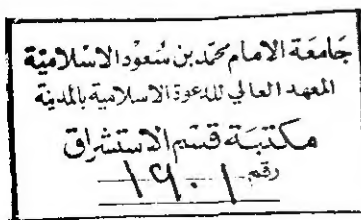 جامعة الامام محمد بن سعود الاسلامية
المعهد العالي للدعوة الاسلامية بالمدينة
مكتبة قسم الاستشراق
رقم ١٦٠١